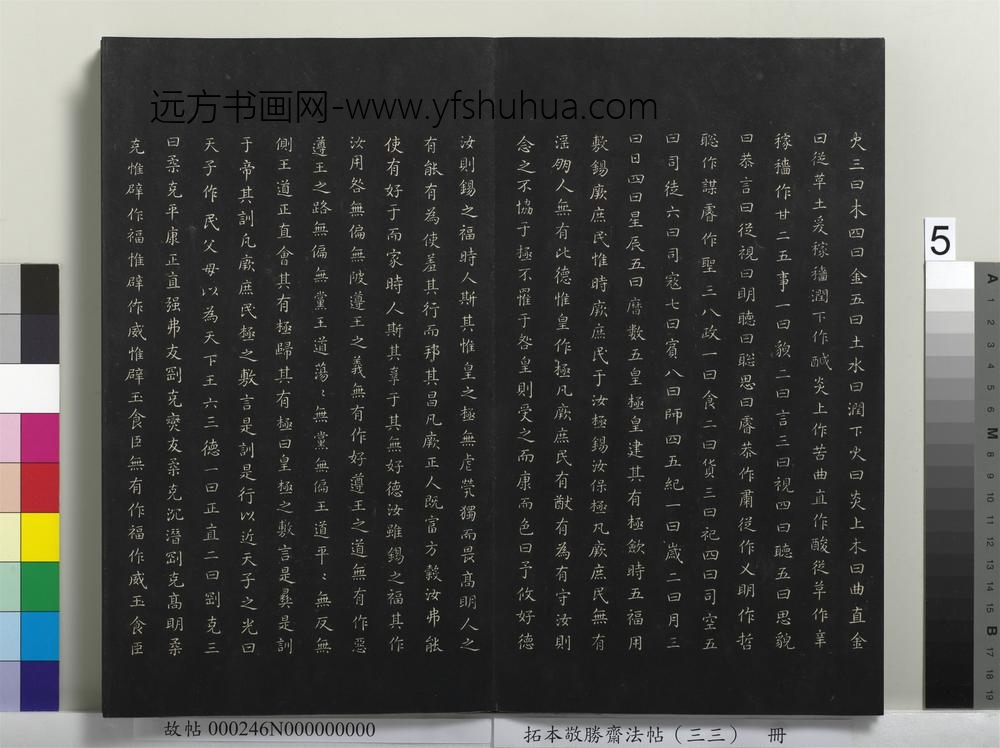 远方书画网-www.yfshuhua.com
火三曰木四曰金五曰土水曰潤下火曰炎上木曰曲直金
曰從革土爰稼穡潤下作鹹炎上作苦曲直作酸從革作辛
稼穡作甘二五事一曰貌二曰言三曰視四曰聽五曰思貌
曰恭言曰從視曰明聽曰聡思曰睿恭作肅從作乂明作哲
聡作謀睿作聖三八政一曰食二曰貨三曰祀四曰司空五
曰司徒六曰司寇七曰賓八曰師四五紀一曰歲二曰月三
曰日四曰星辰五曰曆數五皇極皇建其有極歛時五福用
敷錫厥庶民惟時厥庶民于汝極錫汝保極凡厥庶民無有
淫朋人無有比德惟皇作極凡厥庶民有猷有為有守汝則
念之不協于極不罹于咎皇則受之而康而色曰予攸好德
汝則錫之福時人斯其惟皇之極無虐煢獨而畏高明人之
有能有為使羞其行而邦其昌凡厥正人既富方穀汝弗能
使有好于而家時人斯其辜于其無好德汝雖錫之福其作
汝用咎無偏無陂遵王之義無有作好遵王之道無有作惡
遵王之路無偏無黨王道蕩〻無黨無偏王道平〻無反無
側王道正直會其有極歸其有極曰皇極之敷言是彝是訓
于帝其訓凡厥庶民極之敷言是訓是行以近天子之光曰
天子作民父母以為天下王六三德一曰正直二曰剛克三
曰柔克平康正直强弗友剛克燮友柔克沉潛剛克高明柔
克惟辟作福惟辟作威惟辟玉食臣無有作福作威玉食臣
5
A 1 2 3 4 5 6 M 8 9 10 11 12 13 14 15 B 17 18 19
故帖 000246N000000000
拓本敬勝齋法帖（三三） 冊